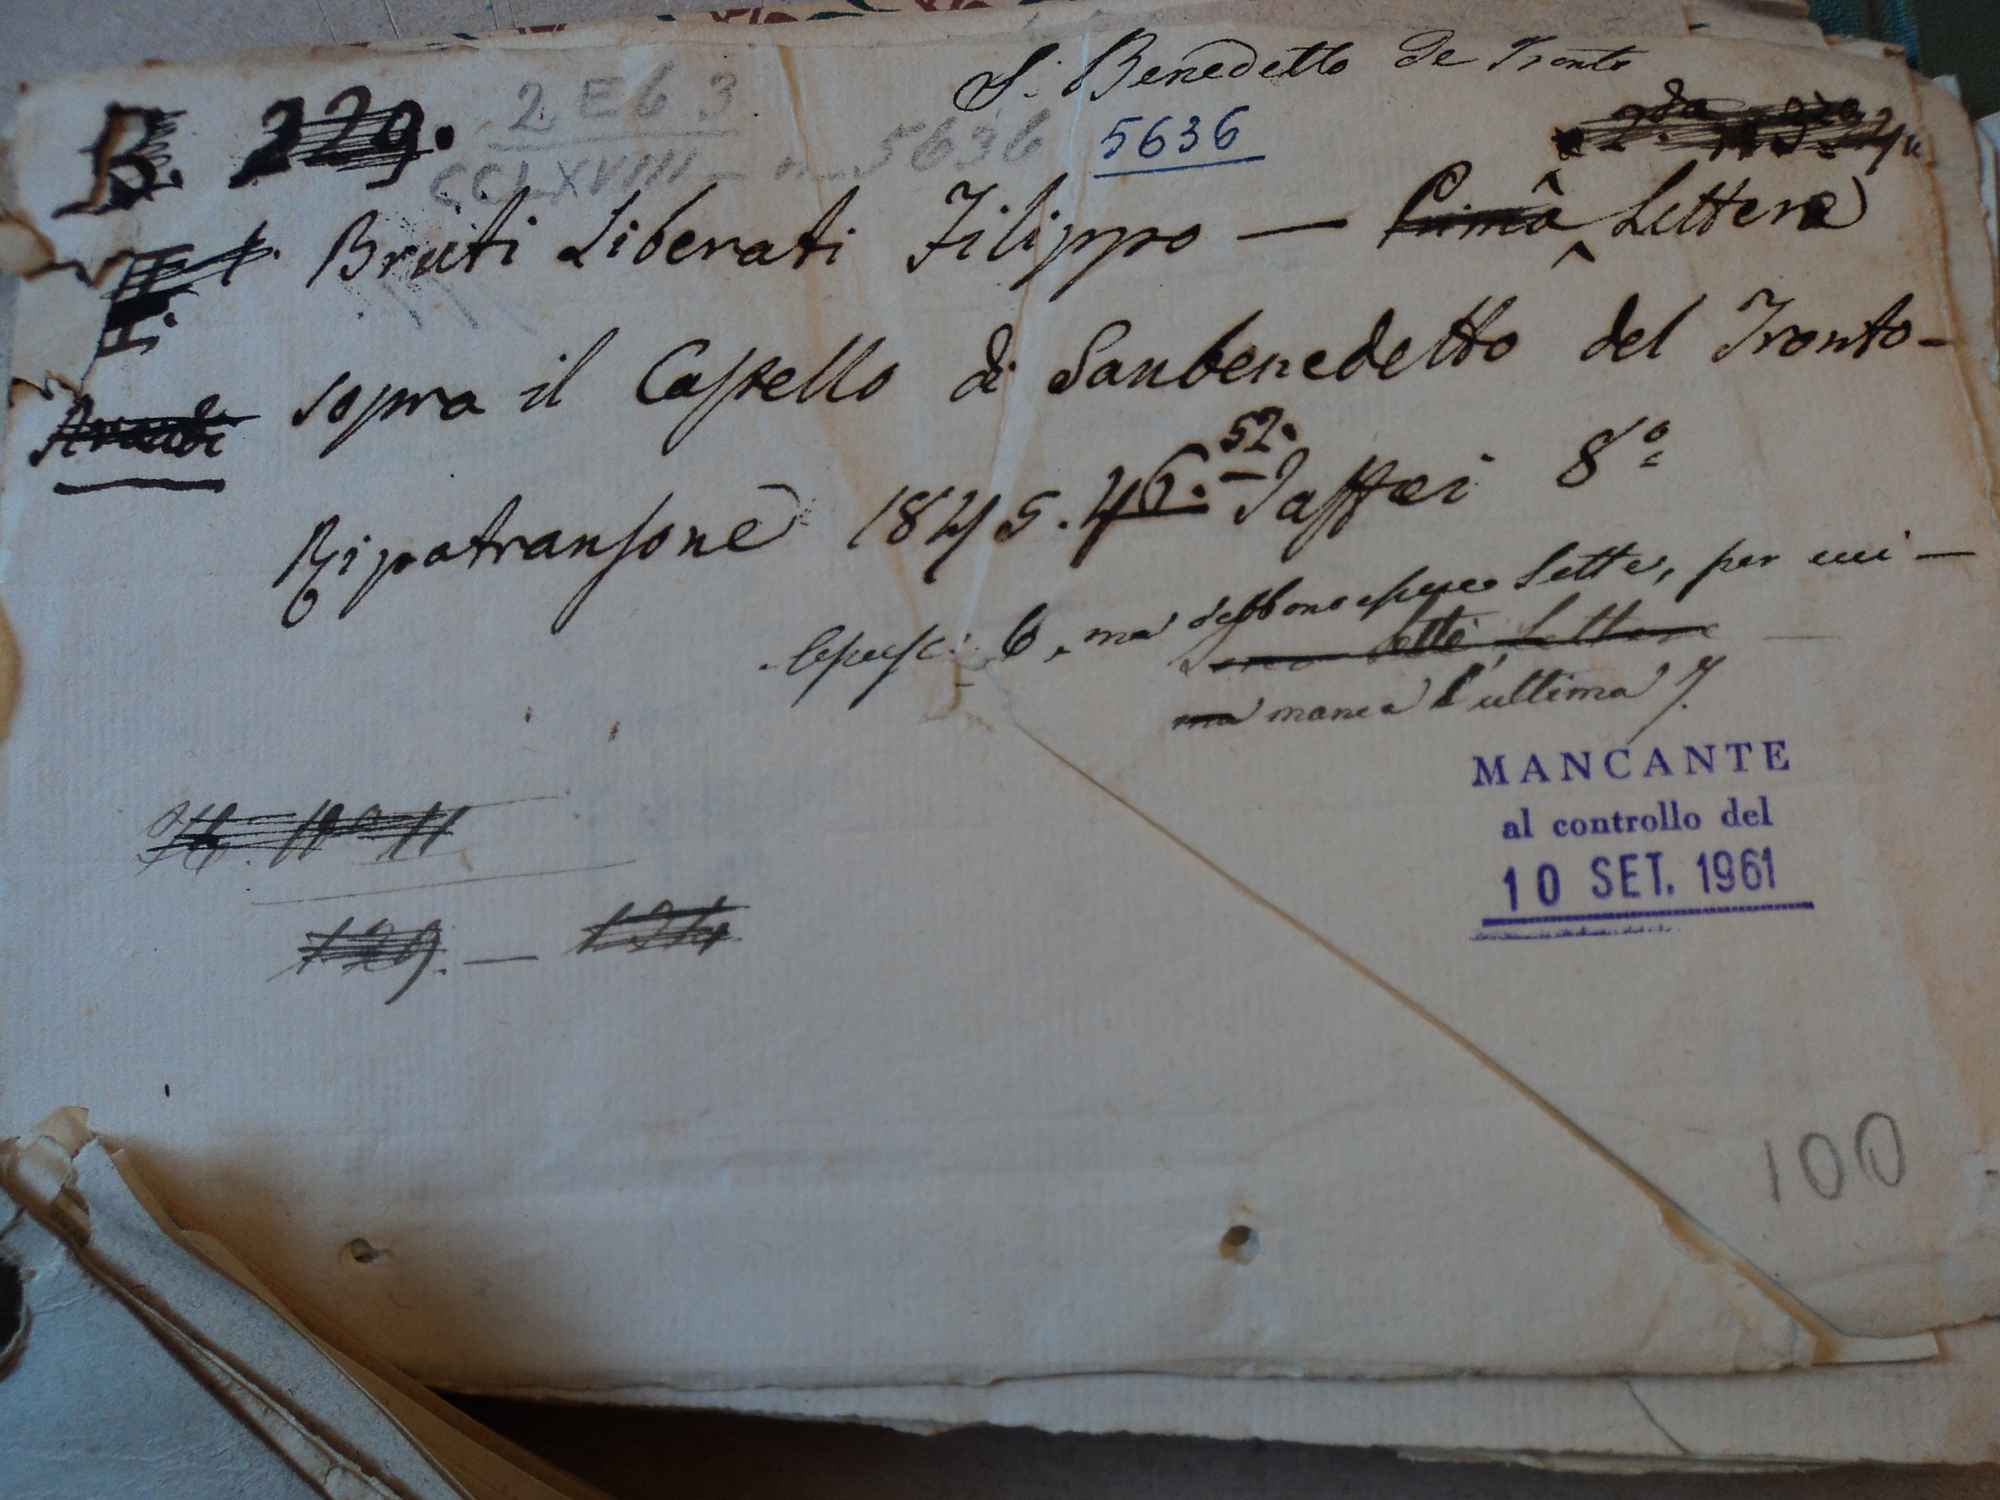 S. Benedetto de Tronto
B. 229.
2 E 6 3
CCLXVIII - n. 5636
5636
Bruti Liberati Filippo — Prima Lettera
sopra il Castello di Sanbenedetto del Tronto -
Ripatransone 1845. 46. - 52. Jaffei 8º
6, ma debbono essere Sette, per cui —
Sono Sette Lettere
ma manca l'ultima 7.
MANCANTE
al controllo del
10 SET. 1961
129. — 124
100